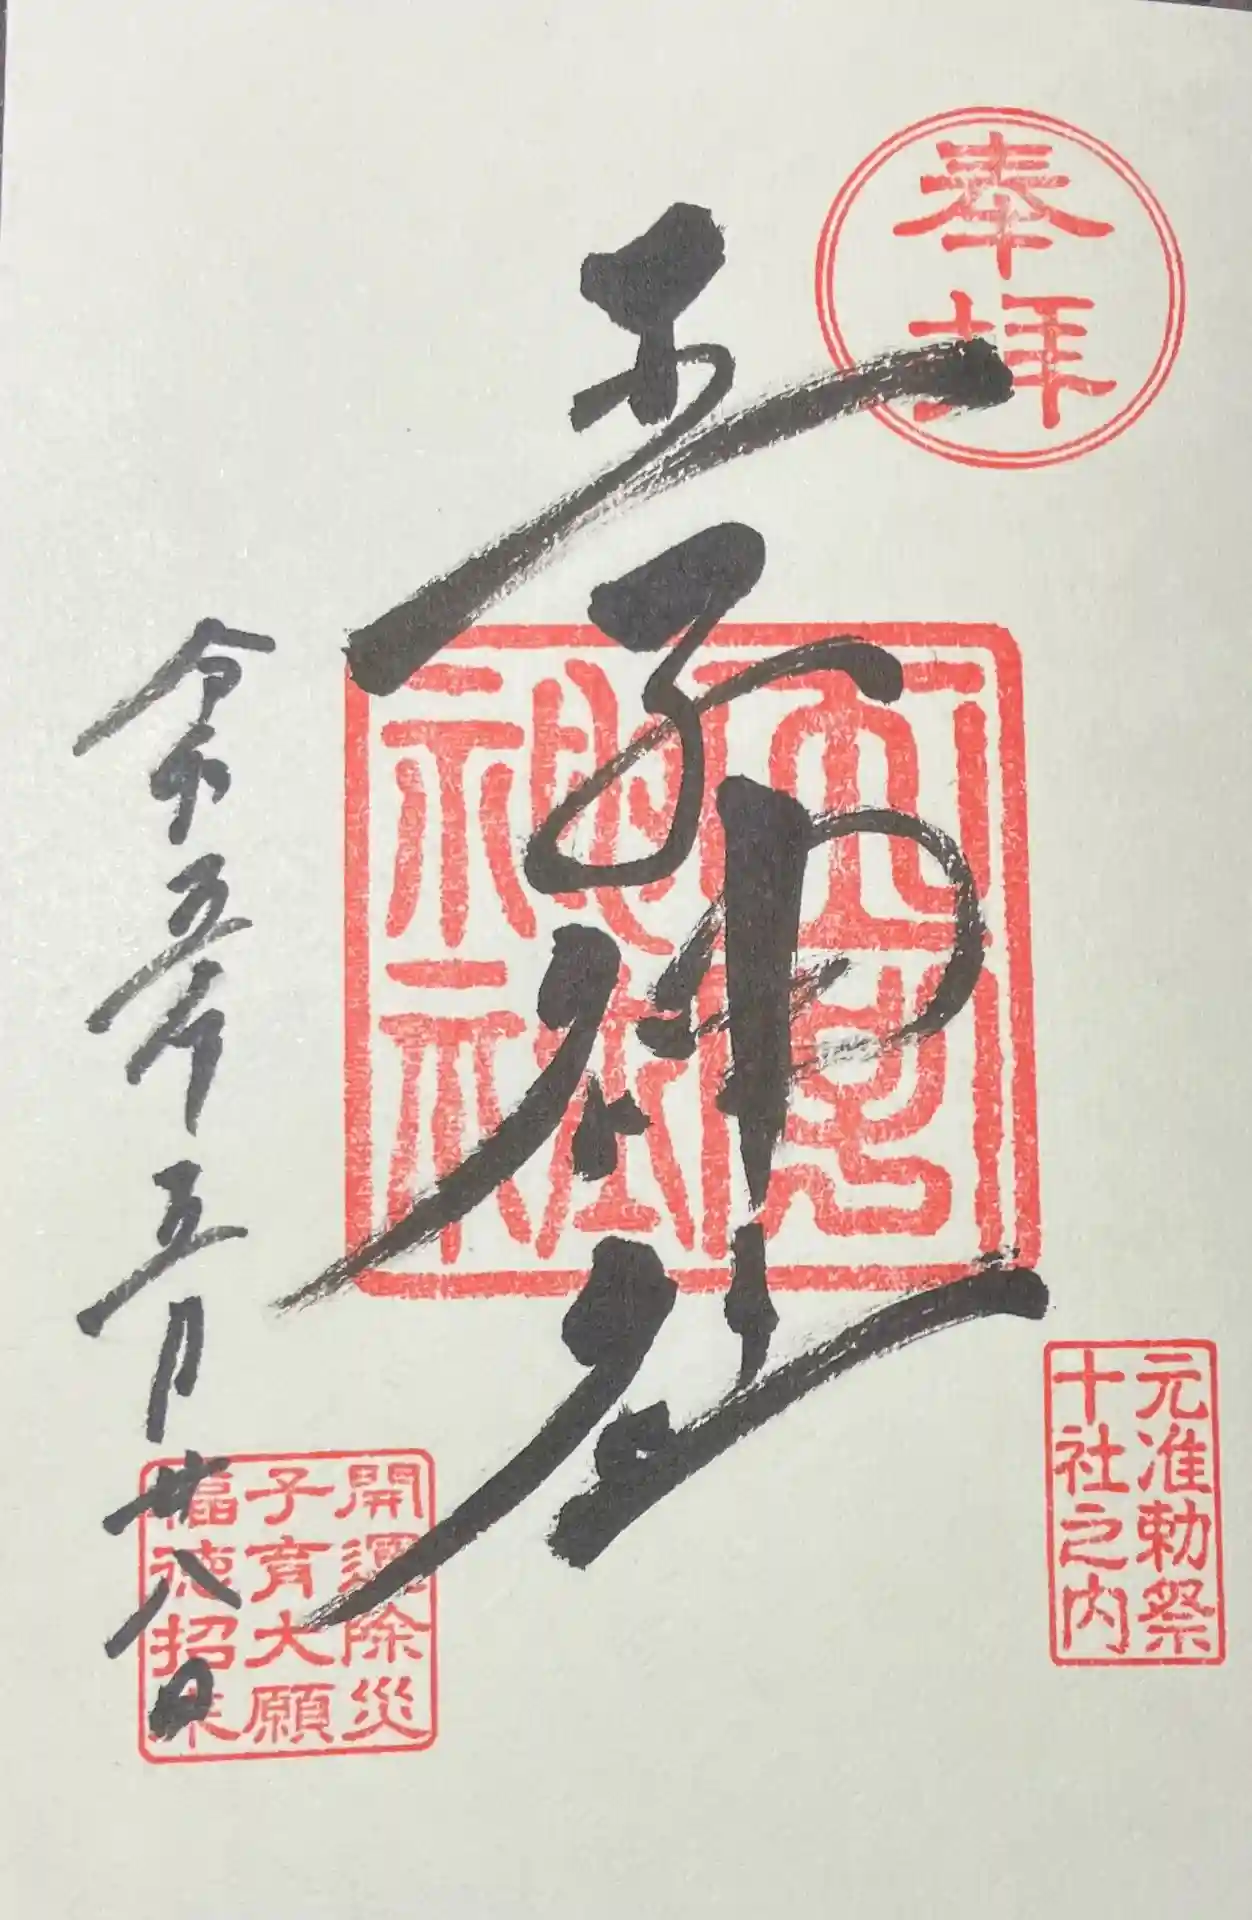 奉拝
王子神社
王子神社
元准勅祭
十社之内
令和五年五月廿八日
開運除災
子育大願
福徳招来